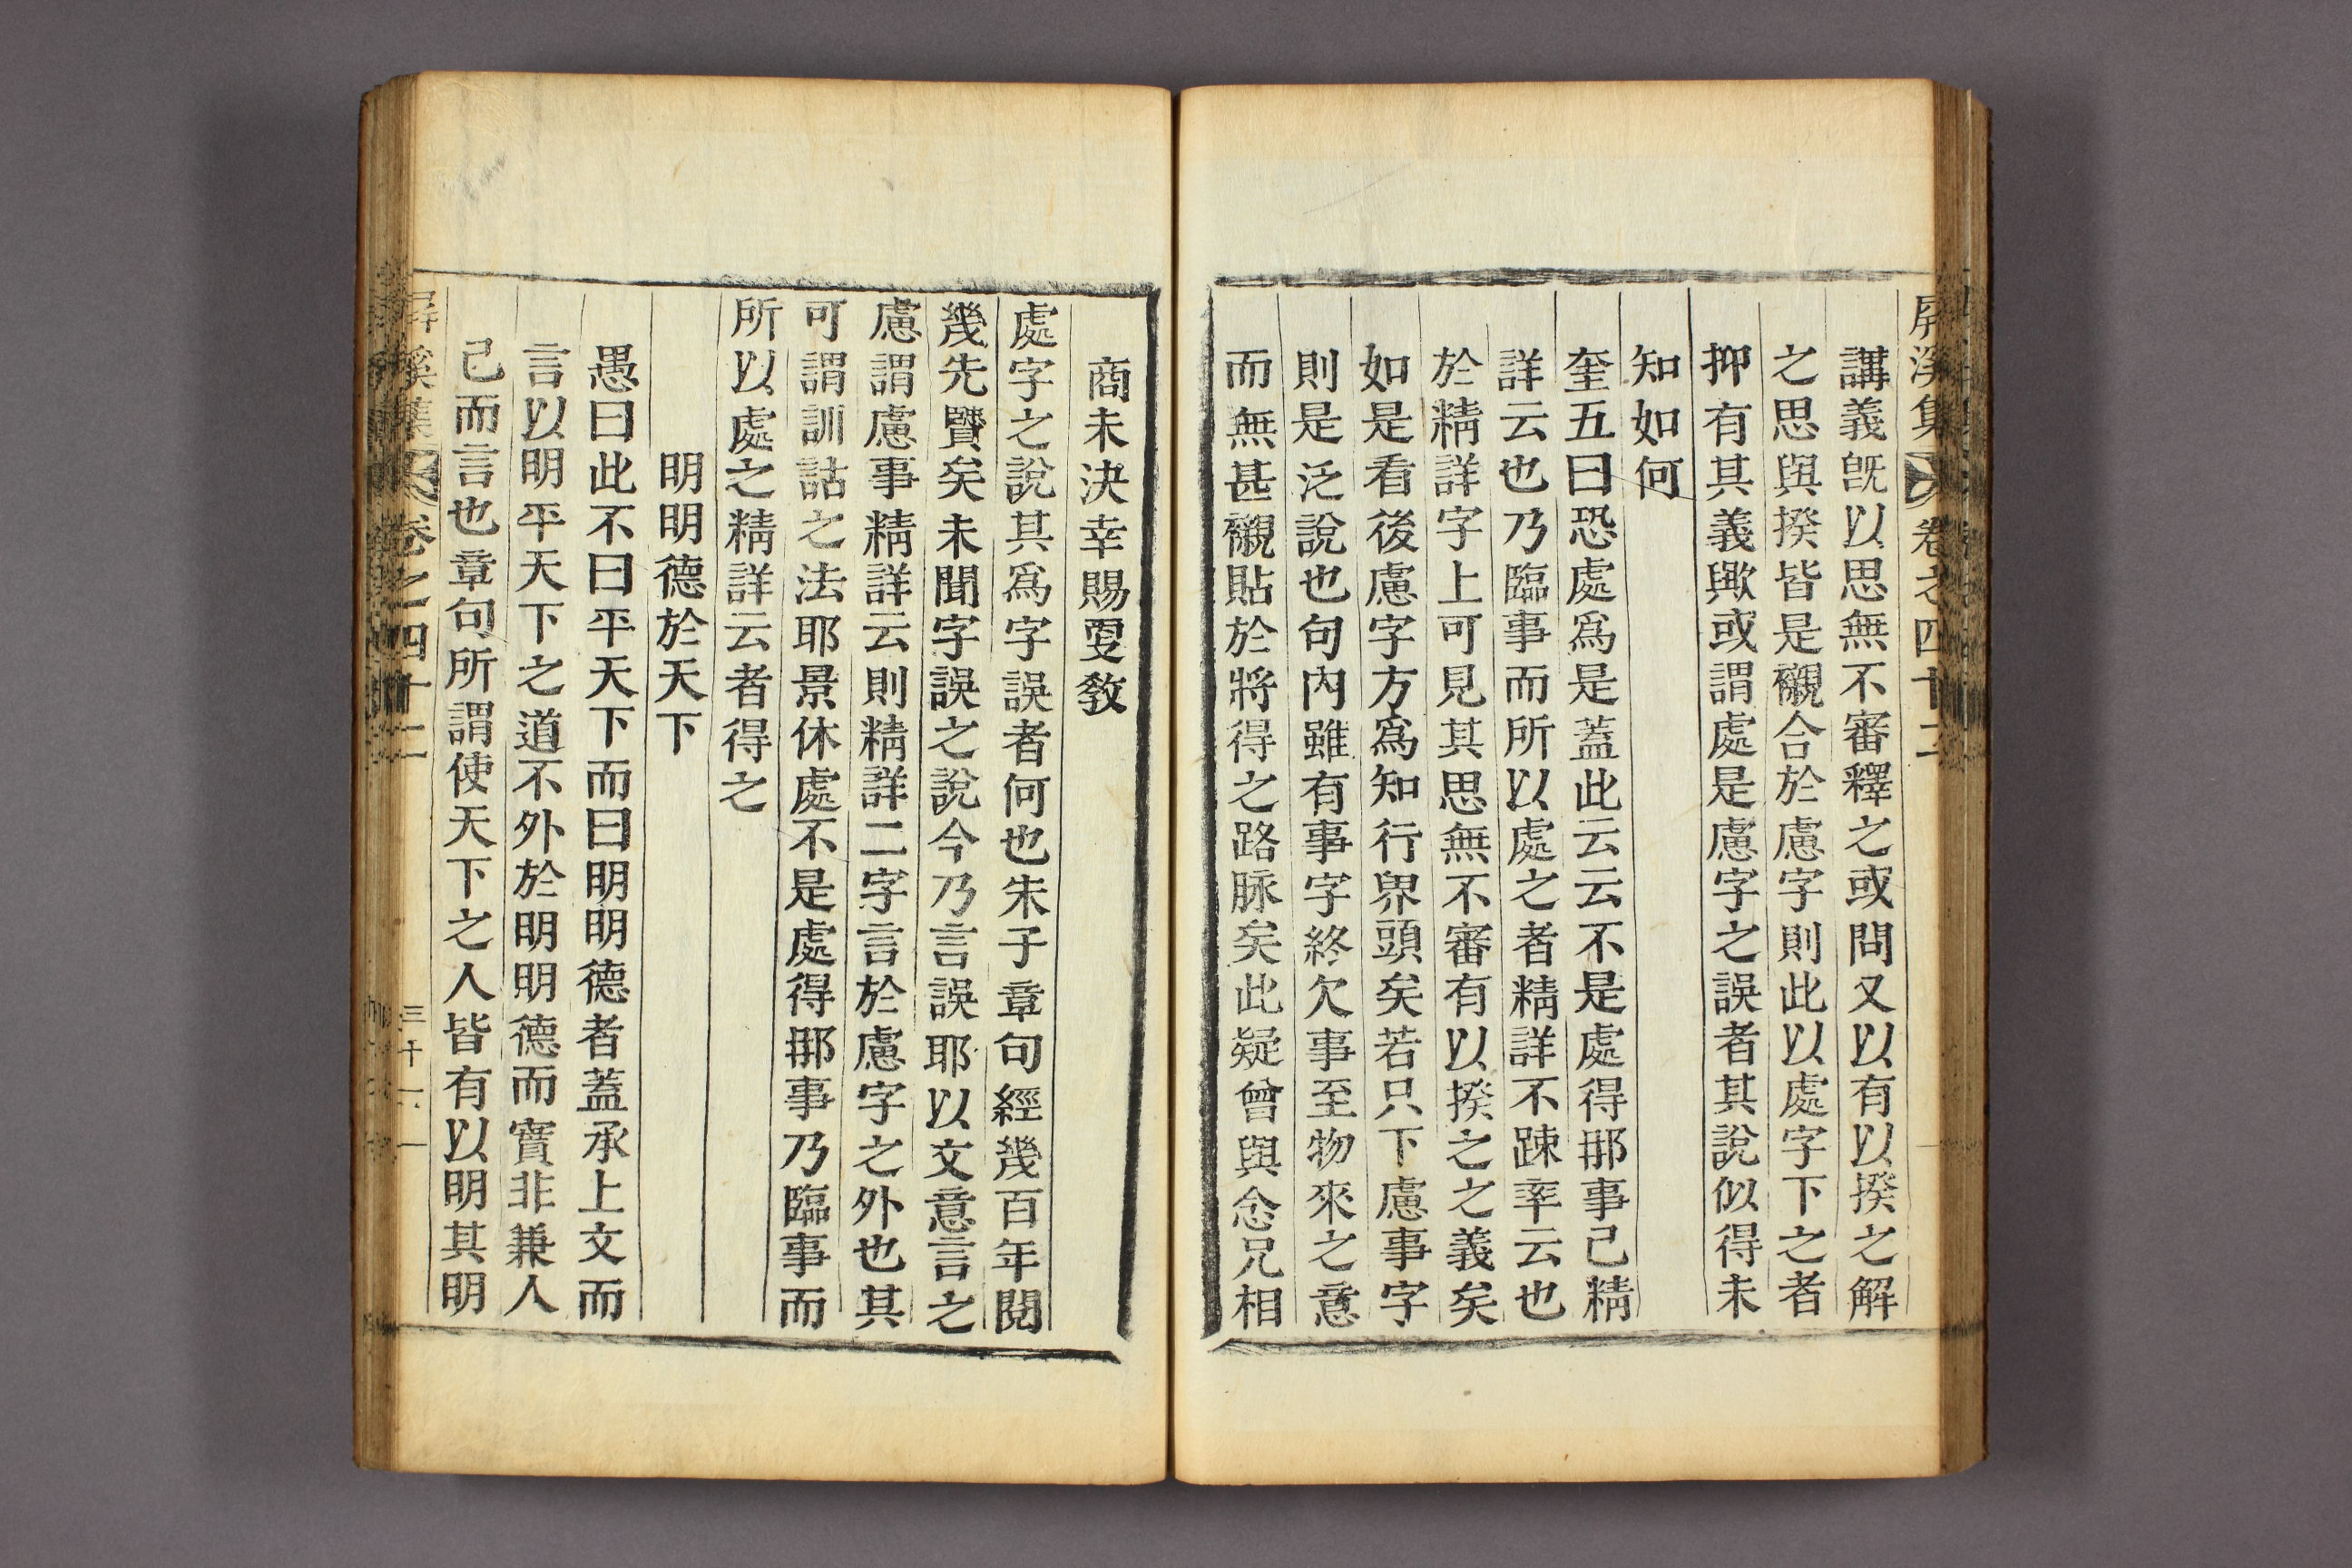 屛溪集
卷之四十二
講義旣以思無不審釋之或問又以有以揆之解
之思與揆皆是襯合於慮字則此以處字下之者
抑有其義歟或謂處是慮字之誤者其說似得未
知如何
奎五曰恐處爲是蓋此云云不是處得那事己精
詳云也乃臨事而所以處之者精詳不踈率云也
於精詳字上可見其思無不審有以揆之之義矣
如是看後慮字方爲知行界頭矣若只下慮事字
則是泛說也句內雖有事字終欠事至物來之意
而無甚襯貼於將得之路脉矣此疑曾與念兄相
商未決幸賜更敎
處字之說其爲字誤者何也朱子章句經幾百年閱
幾先贒矣未聞字誤之說今乃言誤耶以文意言之
慮謂慮事精詳云則精詳二字言於慮字之外也其
可謂訓詁之法耶景休處不是處得那事乃臨事而
所以處之精詳云者得之
明明德於天下
愚曰此不曰平天下而曰明明德者蓋承上文而
言以明平天下之道不外於明明德而實非兼人
己而言也章句所謂使天下之人皆有以明其明
屛溪集
卷之四十二